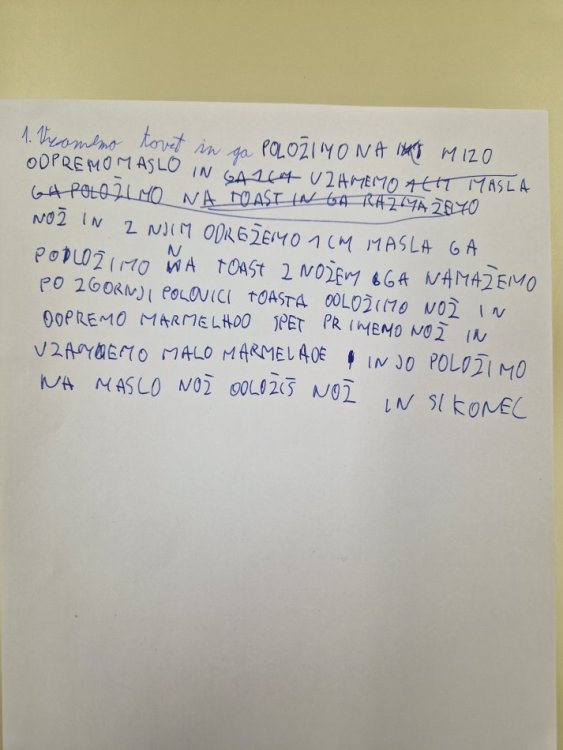 1. Vzamemo tovst in ga POLOŽIMO NA MIZO
ODPREMO MASLO IN GA 1CM VZAMEMO 1CM MASLA
GA POLOŽIMO NA TOAST IN GA RAZMAŽEMO
NOŽ IN Z NJIM ODREŽEMO 1CM MASLA GA
POLOŽIMO NA TOAST Z NOŽEM GA NAMAŽEMO
PO ZGORNJI POLOVICI TOASTA ODLOŽIMO NOŽ IN
ODPREMO MARMELADO SPET PRIMEMO NOŽ IN
VZAMEMO MALO MARMELADE IN JO POLOŽIMO
NA MASLO NOŽ ODLOŽIŠ NOŽ IN SI KONEC